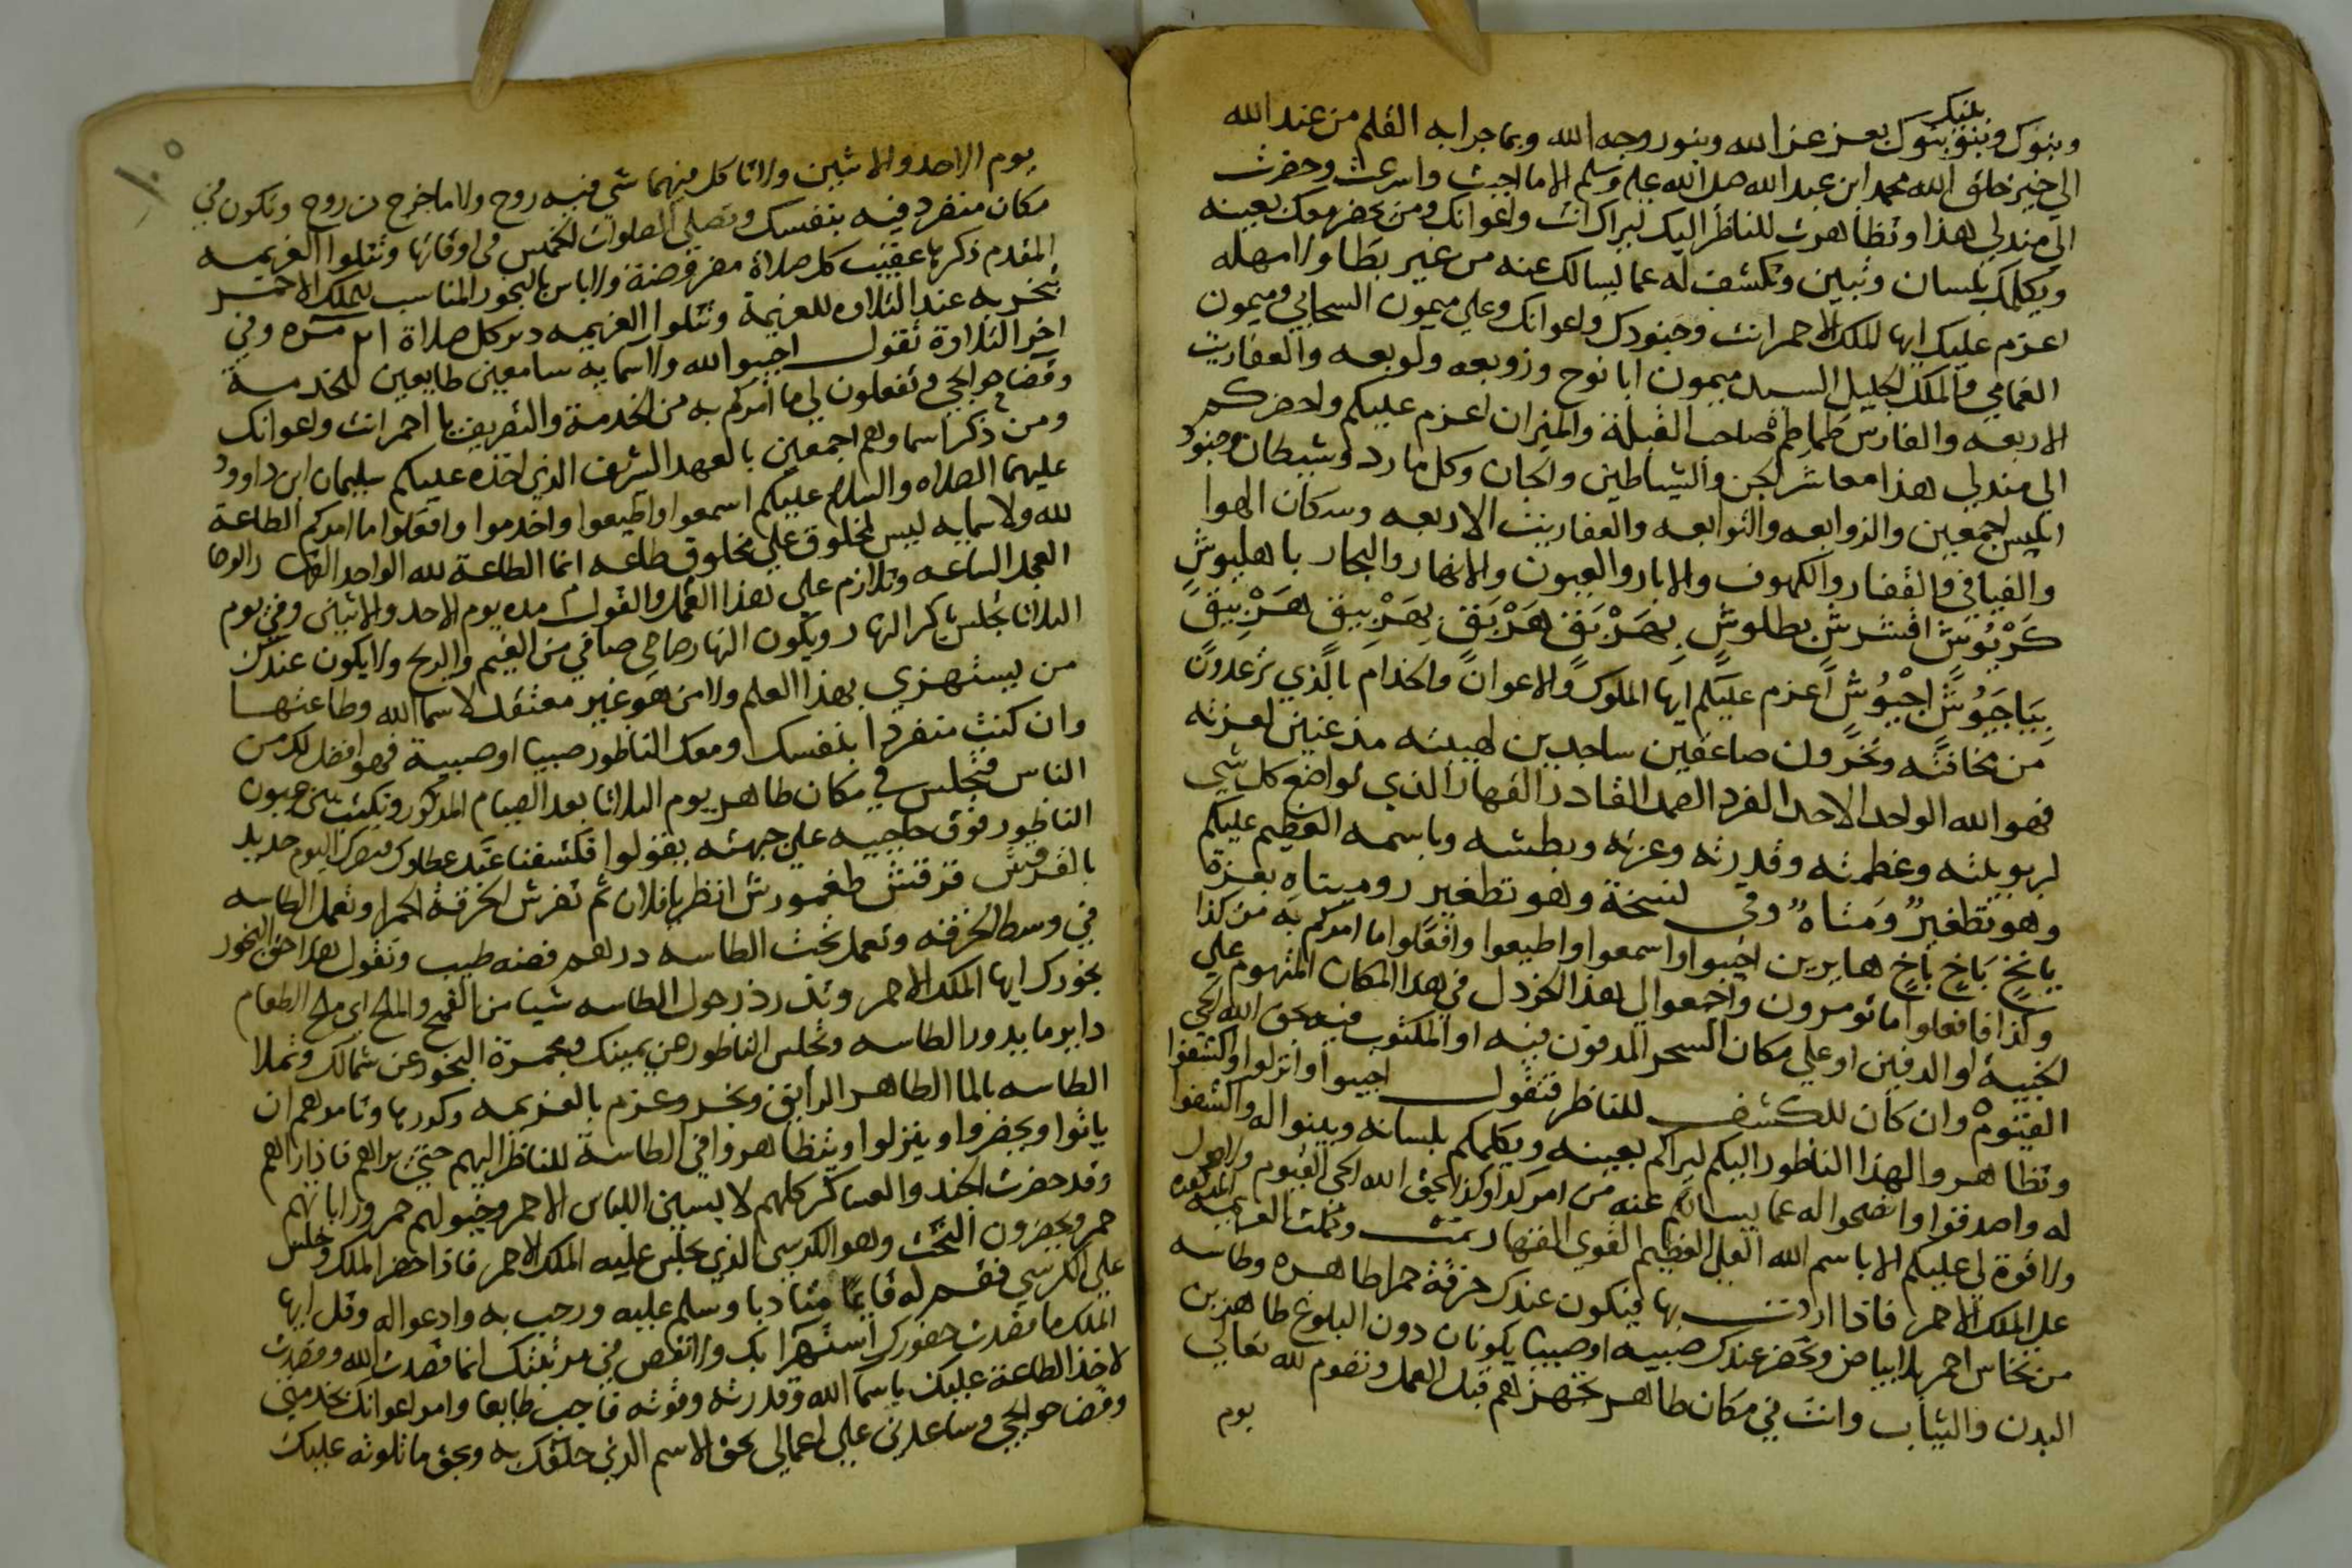 وبنوك وبننو بنوك بعز عز الله وبنور وجه الله وبما جرا به القلم من عند الله
الي خير خلق الله محمد ابن عبد الله صلا الله عليه وسلم الا ما اجبت واسرعت وحضرت
الي مندلي هذا وتظاهرت للناظر اليك ليراك انت واعوانك ومن يحضر معك بعينه
ويكلمك بلسان وتبين وتكشف له عما يسالك عنه من غير بطا ولا مهله
اعزم عليك ايها الملك الاحمر انت وجنودك واعوانك وعلي ميمون السحابي وميمون
الغمامي والملك الجليل السيد ميمون ابا نوح وزوبعه ولوبعه والعفاريت
الاربعه والفارس طماطم صاحب القبلة والميزان اعزم عليكم واحضركم
الي مندلي هذا معاشر الجن والشياطين والجان وكل مارد وشيطان وجنود
ابليس اجمعين والزوابعه والتوابعه والعفاريت الاربعه وسكان الهوا
والفيافي والقفار والكهوف والابار والعيون والانهار والبحار يا هليوش
كربوش افشرش بطلوش بهريق هربق بهزبيق هربيق
بياجيوش اجيوش اعزم عليكم ايها الملوك والاعوان والخدام بالذي ترعدون
من مخافته وتخرون صاعقين ساجدين لهيبته مذعنين لعزته
فهو الله الواحد الاحد الفرد الصمد القادر القهار الذي تواضع كل شي
لربوبيته وعظمته وقدرته وعزته وبطشه وباسمه العظيم عليكم
وهو تظغير ومثاه وفي نسخة وهو تطغير روميتاه بعزة
يانخ باخ باخ هايرين اجيبوا واسمعوا واطيعوا وافعلوا ما امركم به من كذا
وكذا فافعلوا ما تومرون واجمعوا لي هذا الخردل في هذا المكان المتهوم علي
الخبية او الدفين او علي مكان السحر المدفون فيه او المكتوب فيه بحق الله الحي
القيوم وان كان للكشف للناظر فتقول اجيبوا وانزلوا واكشفوا
وتظاهروا لهذا الناظور اليكم ليراكم بعينه ويكلمكم بلسانه وبينوا له واكشفوا
له واصدقوا واضحوا له عما يسالكم عنه من امر كذا وكذا بحق الله الحي القيوم ولا حول
ولا قوة لي عليكم الا باسم الله العلي العظيم القوي القهار تمت وكملت العزيمه
علي الملك الاحمر فاذا اردت بها فيكون عندك خرقة حمرا طاهره وطاسه
من نحاس احمر بلا بياض وتحضر عندك صبيه او صبيا يكونان دون البلوغ طاهرين
البدن والثياب وانت في مكان طاهر تجهزهم قبل العمل وتصوم لله تعالي
يوم
يوم الاحد والاثنين ولا تاكل فيهما شي فيه روح ولا ما خرج من روح وتكون في
مكان منفرد فيه بنفسك وتصلي الصلوات الخمس في اوقاتها وتتلوا العزيمه
المقدم ذكرها عقيب كل صلاة مفروضة ولا باس بالبخور المناسب للملك الاحمر
تبخر به عند التلاوه للعزيمة وتتلوا العزيمه دبر كل صلاة مره وفي
اخر التلاوة تقول اجيبوا الله ولاسمايه سامعين طايعين للخدمة
وقضا حوايجي وتفعلون لي ما امركم به من الخدمة والتصريف يا احمر انت واعوانك
ومن ذكر اسماوهم اجمعين بالعهد الشريف الذي اخذه عليكم سليمان ابن داوود
عليهما الصلاه والسلام عليكم اسمعوا واطيعوا واخدموا وافعلوا ما امركم الطاعة
لله ولاسمايه ليس لمخلوق علي مخلوق طاعه انما الطاعة لله الواحد القهار الوحا
العجل الساعه وتلازم علي هذا العمل والقول مده يوم الاحد والاثنين وفي يوم
الثلاثا تجلس باكر النهار ويكون النهار صاحي صافي من الغيم والريح ولا يكون عندك
من يستهزي بهذا العلم ولا من هو غير معتقد لاسما الله وطاعتها
وان كنت منفردا بنفسك ومعك الناظور صبيا او صبية فهو افضل لك من
الناس فتجلس في مكان طاهر يوم الثلاثا بعد الصيام المذكور وتكتب بين عيون
الناظور فوق حاجبيه علي جبهته بقولوا فكشفنا عنك غطاوك فبصرك اليوم حديد
بالقرفش قرقنش طغمورش انظر يا فلان ثم تفرش الخرقة الحمرا وتعمل الطاسه
في وسط الخرقه وتعمل تحت الطاسه درهم فضه طيب وتقول هذا حق البخور
بخورك ايها الملك الاحمر وتذرذر حول الطاسه شيا من القمح والملح اي ملح الطعام
داير ما يدور الطاسه وتجلس الناظور عن يمينك ومجمرة البخور عن شمالك وتملا
الطاسه بالما الطاهر الرايق وبخر وعزم بالعزيمه وكررها وتامرهم ان
ياتوا ويحضروا وينزلوا ويتظاهروا في الطاسة للناظر اليهم حتي يراهم فاذا راهم
وقد حضرت الجند والعساكر كلهم لابسين اللباس الاحمر وخيولهم حمر وراياتهم
حمر ويحضرون التخت وهو الكرسي الذي يجلس عليه الملك الاحمر فاذا حضر الملك وجلس
علي الكرسي فقم له قايما متادبا وسلم عليه ورحب به وادعوا له وقل ايها
الملك ما قصدت حضورك استهزا بك ولا انقص في مرتبتك انما قصدت الله وقصدت
لاخذ الطاعة عليك باسما الله وقدرته وقوته فاجب طايعا وامر اعوانك بخدمتي
وقضا حوايجي وساعدني علي اعمالي بحق الاسم الذي خلقك به وبحق ما تلوته عليك